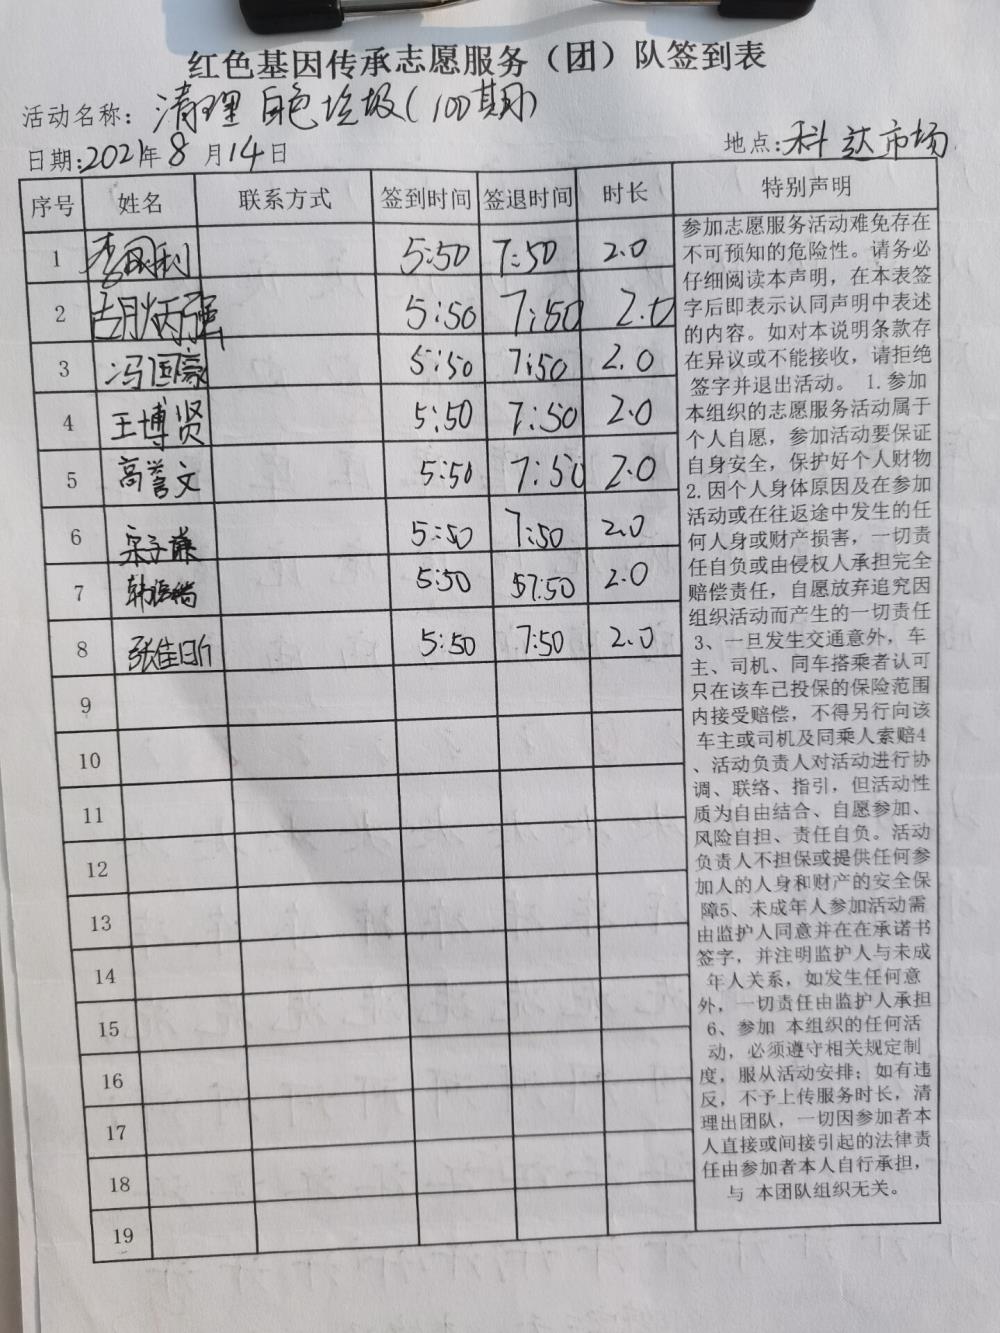 红色基因传承志愿服务（团）队签到表
活动名称：清理白色垃圾(100期)
日期:2021年8月14日
地点:科达市场
序号 姓名 联系方式 签到时间 签退时间 时长 特别声明
1 李国利 5:50 7:50 2.0
2 胡炳强 5:50 7:50 2.0
3 冯国豪 5:50 7:50 2.0
4 王博贤 5:50 7:50 2.0
5 高誉文 5:50 7:50 2.0
6 宋子谦 5:50 7:50 2.0
7 5:50 7:50 2.0
8 张佳昕 5:50 7:50 2.0
9
10
11
12
13
14
15
16
17
18
19
参加志愿服务活动难免存在
不可预知的危险性。请务必
仔细阅读本声明，在本表签
字后即表示认同声明中表述
的内容。如对本说明条款存
在异议或不能接收，请拒绝
签字并退出活动。 1.参加
本组织的志愿服务活动属于
个人自愿，参加活动要保证
自身安全，保护好个人财物
2.因个人身体原因及在参加
活动或在往返途中发生的任
何人身或财产损害，一切责
任自负或由侵权人承担完全
赔偿责任，自愿放弃追究因
组织活动而产生的一切责任
3、一旦发生交通意外，车
主、司机、同车搭乘者认可
只在该车已投保的保险范围
内接受赔偿，不得另行向该
车主或司机及同乘人索赔4
、活动负责人对活动进行协
调、联络、指引，但活动性
质为自由结合、自愿参加、
风险自担、责任自负。活动
负责人不担保或提供任何参
加人的人身和财产的安全保
障5、未成年人参加活动需
由监护人同意并在在承诺书
签字，并注明监护人与未成
年人关系，如发生任何意
外，一切责任由监护人承担
6、参加 本组织的任何活
动，必须遵守相关规定制
度，服从活动安排；如有违
反，不予上传服务时长，清
理出团队，一切因参加者本
人直接或间接引起的法律责
任由参加者本人自行承担，
与 本团队组织无关。